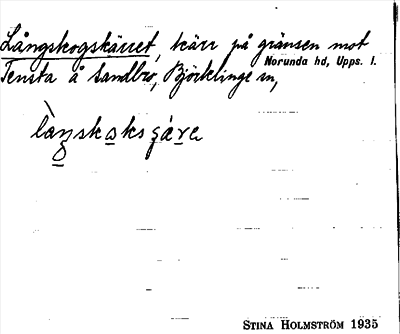 Långskogskärret, kärr på gränsen mot
Norunda hd, Upps. l.
Tensta å Sandbro, Björklinge sn,
làŋskoksçǽre
STINA HOLMSTRÖM 1935